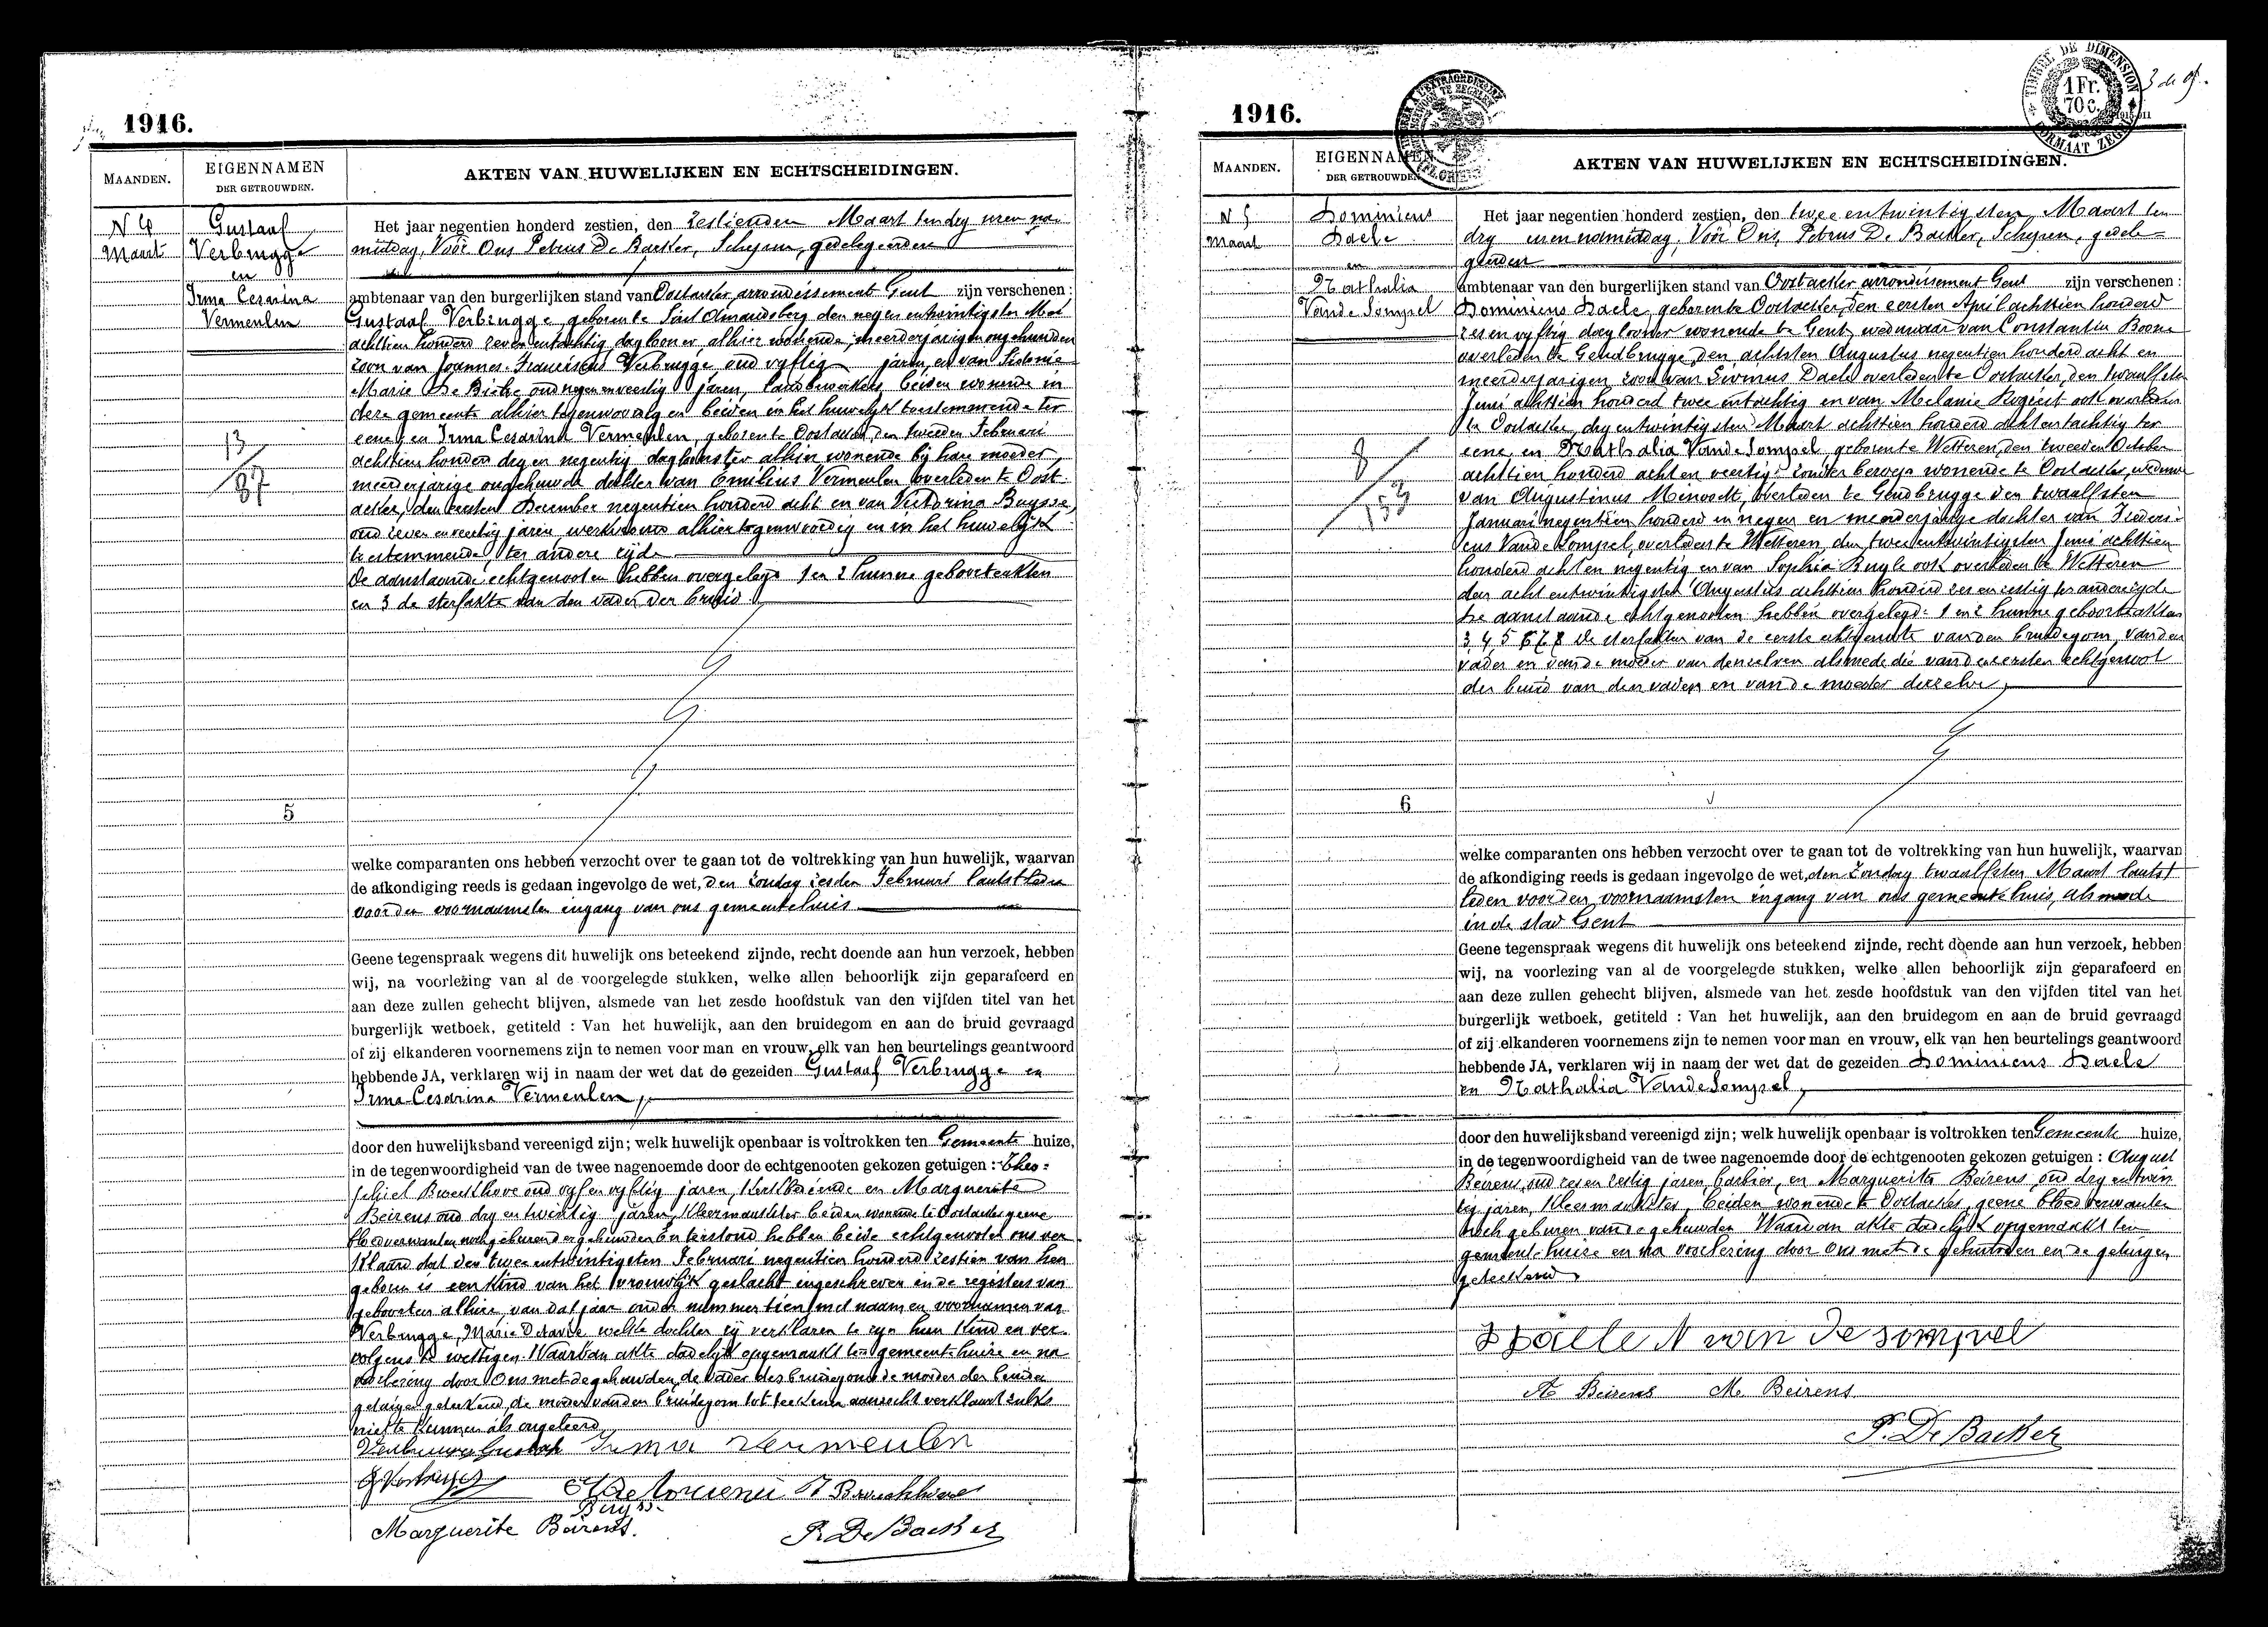 1916.
MAANDEN.
EIGENNAMEN
DER GETROUWDEN.
AKTEN VAN HUWELIJKEN EN ECHTSCHEIDINGEN.
N 4
Maart
Gustaaf
Verbrugge
en
Irma Cesarina
Vermeulen
13
87
5
Het jaar negentien honderd zestien, den zestienden Maart ten dry uren na
middag, Voor Ons Petrus De Backer, Schepen, gedelegeerden
ambtenaar van den burgerlijken stand van Oostacker arrondissement Gent zijn verschenen :
Gustaaf Verbrugge geboren te Sint Amandsberg den negen entwintigsten Mei
achttien honderd zeven entachtig daglooner alhier wonende, meerderjarigen ongehuwden
zoon van Joannes-Franciscus Verbrugge oud vyftig jaren, en van Sidonie
Marie De oud negen en veertig jaren, landbewerkers, beiden wonende in
deze gemeente alhier tegenwoordig en beiden in het huwelyk toestemmende ter
eene, en Irma Cesarina Vermeulen, geboren te Oostacker den tweeden Februari
achttien honderd dry en negentig dagloonster alhier wonende bij hare moeder,
meerderjarige ongehuwde dochter van Emilius Vermeulen overleden te Oost-
acker, den eersten December negentien honderd acht en van Victorina Buysse,
oud zeven en veertig jaren werkvrouw alhier tegenwoordig en in het huwelijk
toestemmende, ter andere zijde
De aanstaande echtgenooten hebben overgelegd 1 en 2 hunne geboorteakten
en 3 de sterfakte van den vader der bruid.
welke comparanten ons hebben verzocht over te gaan tot de voltrekking van hun huwelijk, waarvan
de afkondiging reeds is gedaan ingevolge de wet, den zondag zesden Februari laatstleden
voor den voornaamsten ingang van ons gemeentehuis
Geene tegenspraak wegens dit huwelijk ons beteekend zijnde, recht doende aan hun verzoek, hebben
wij, na voorlezing van al de voorgelegde stukken, welke allen behoorlijk zijn geparafeerd en
aan deze zullen gehecht blijven, alsmede van het zesde hoofdstuk van den vijfden titel van het
burgerlijk wetboek, getiteld : Van het huwelijk, aan den bruidegom en aan de bruid gevraagd
of zij elkanderen voornemens zijn te nemen voor man en vrouw, elk van hen beurtelings geantwoord
hebbende JA, verklaren wij in naam der wet dat de gezeiden Gustaaf Verbrugge en
Irma Cesarina Vermeulen,
door den huwelijksband vereenigd zijn; welk huwelijk openbaar is voltrokken ten Gemeente huize,
in de tegenwoordigheid van de twee nagenoemde door de echtgenooten gekozen getuigen : Theo-
phiel oud vyf en vyftig jaren, en Marguerite
Beirens oud dry en twintig jaren, kleermaakster beiden wonende te Oostacker geene
bloedverwanten noch geburen der gehuwden En terstond hebben beide echtgenooten ons ver-
klaard dat den twee entwintigsten Februari negentien honderd zestien van hen
geboren is een kind van het vrouwlijk geslacht ingeschreven in de registers van
geboorten alhier, van dat jaar onder nummer tien met naam en voornamen van
Verbrugge, Marie Octavie welke dochter zij verklaren te zyn hun kind en ver-
volgens te wettigen. Waarvan akte dadelijk opgemaakt ten gemeentehuize en na
voorlezing door Ons met de gehuwden, de vader des bruidegoms de moeder der bruid en
getuigen geteekend, de moeder van den bruidegom tot teekenen aanzocht verklaard zulks
niet te kunnen als ongeleerd
Verbrugge Gustaaf Irma Vermeulen
Buysse
Marguerite Beirens. P. De Backer
1916.
TIMBRE DE DIMENSION
1 Fr.
70 c.
FORMAAT ZEGEL
MAANDEN.
EIGENNAMEN
DER GETROUWDEN.
AKTEN VAN HUWELIJKEN EN ECHTSCHEIDINGEN.
N 5
Maart
Dominicus
Daele
en
Nathalia
Van de Sompel
8
153
6
Het jaar negentien honderd zestien, den twee entwintigsten Maart ten
dry uren namiddag, Voor Ons, Petrus De Backer, Schepen, gedele=
geerden
ambtenaar van den burgerlijken stand van Oostacker arrondissement Gent zijn verschenen :
Dominicus Daele, geboren te Oostacker, den eersten April achttien honderd
zes en vyftig daglooner wonende te Gent, weduwaar van Constantia Boone
overleden te Gendbrugge den achtsten Augustus negentien honderd acht en
meerderjarigen zoon van Livinus Daele overleden te Oostacker, den twaalfsten
Juni achttien honderd twee entachtig en van Melanie Rogiest ook overleden
te Oostacker, dry entwintigsten Maart achttien honderd acht entachtig ter
eene, en Nathalia Van de Sompel, geboren te Wetteren, den tweeden October
achttien honderd acht en veertig zonder beroep wonende te Oostacker, weduwe
van Augustinus overleden te Gendbrugge den twaalfsten
Januari negentien honderd en negen en meerderjarige dochter van Frederi-
cus Van de Sompel, overleden te Wetteren, den twee entwintigsten Juni achttien
honderd acht en negentig en van Sophia ook overleden te Wetteren
den acht entwintigsten Augustus achttien honderd zes en zestig ter andere zyde
De aanstaande echtgenooten hebben overgelegd: 1 en 2 hunne geboorteakten
3, 4, 5 6 7 8 de sterfakten van de eerste echtgenoote van den bruidegom, van den
vader en van de moeder van denzelven alsmede die van den eersten echtgenoot
der bruid van den vader en van de moeder derzelve,
welke comparanten ons hebben verzocht over te gaan tot de voltrekking van hun huwelijk, waarvan
de afkondiging reeds is gedaan ingevolge de wet, den Zondag twaalfsten Maart laatst
leden voor den voornaamsten ingang van ons gemeentehuis, alsmede
in de stad Gent
Geene tegenspraak wegens dit huwelijk ons beteekend zijnde, recht doende aan hun verzoek, hebben
wij, na voorlezing van al de voorgelegde stukken, welke allen behoorlijk zijn geparafeerd en
aan deze zullen gehecht blijven, alsmede van het zesde hoofdstuk van den vijfden titel van het
burgerlijk wetboek, getiteld : Van het huwelijk, aan den bruidegom en aan de bruid gevraagd
of zij elkanderen voornemens zijn te nemen voor man en vrouw, elk van hen beurtelings geantwoord
hebbende JA, verklaren wij in naam der wet dat de gezeiden Dominicus Daele
en Nathalia Van de Sompel,
door den huwelijksband vereenigd zijn; welk huwelijk openbaar is voltrokken ten Gemeente huize,
in de tegenwoordigheid van de twee nagenoemde door de echtgenooten gekozen getuigen : August
Beirens, oud zes en zestig jaren, barbier, en Marguerite Beirens, oud dry entwin
tig jaren, kleermaakster, beiden wonende te Oostacker, geene bloedverwanten
noch geburen van de gehuwden Waarvan akte dadelijk opgemaakt ten
gemeentehuize en na voorlezing door Ons met de gehuwden en de getuigen
geteekend
Daele N van de sompel
A Beirens M. Beirens
P. De Backer